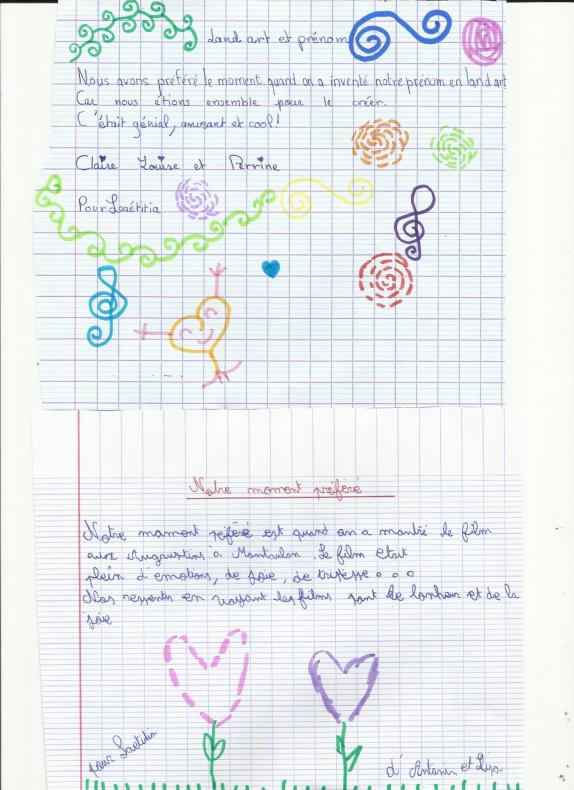 Land art et prénom
Nous avons préféré le moment quand on a inventé notre prénom en land art
Car nous étions ensemble pour le créer.
C'était génial, amusant et cool!
Claire Louise et Perrine
Pour Laétitia
Notre moment préféré
Notre moment péféré est quand on a montré le film
aux Augustins a Montulon. Le film etait
plein d'emotions, de joie, de trisesse...
Nos ressentis en voyant les films sont de bonheur et de la
joie
pour Laetitia
d'Antonin et Lisa